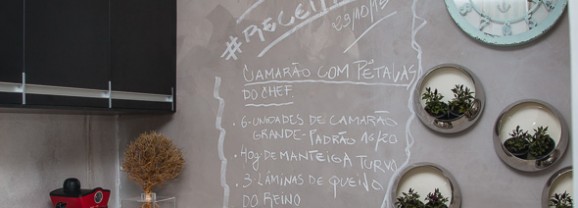 29/10/15
CAMARÃO COM PÉTALAS
DO CHEF
• 6-UNIDADES DE CAMARÃO
GRANDE-PADRÃO 16/20
• 40g DE MANTEIGA TURVA
• 3-LÂMINAS DE QUEIJO
DO REINO